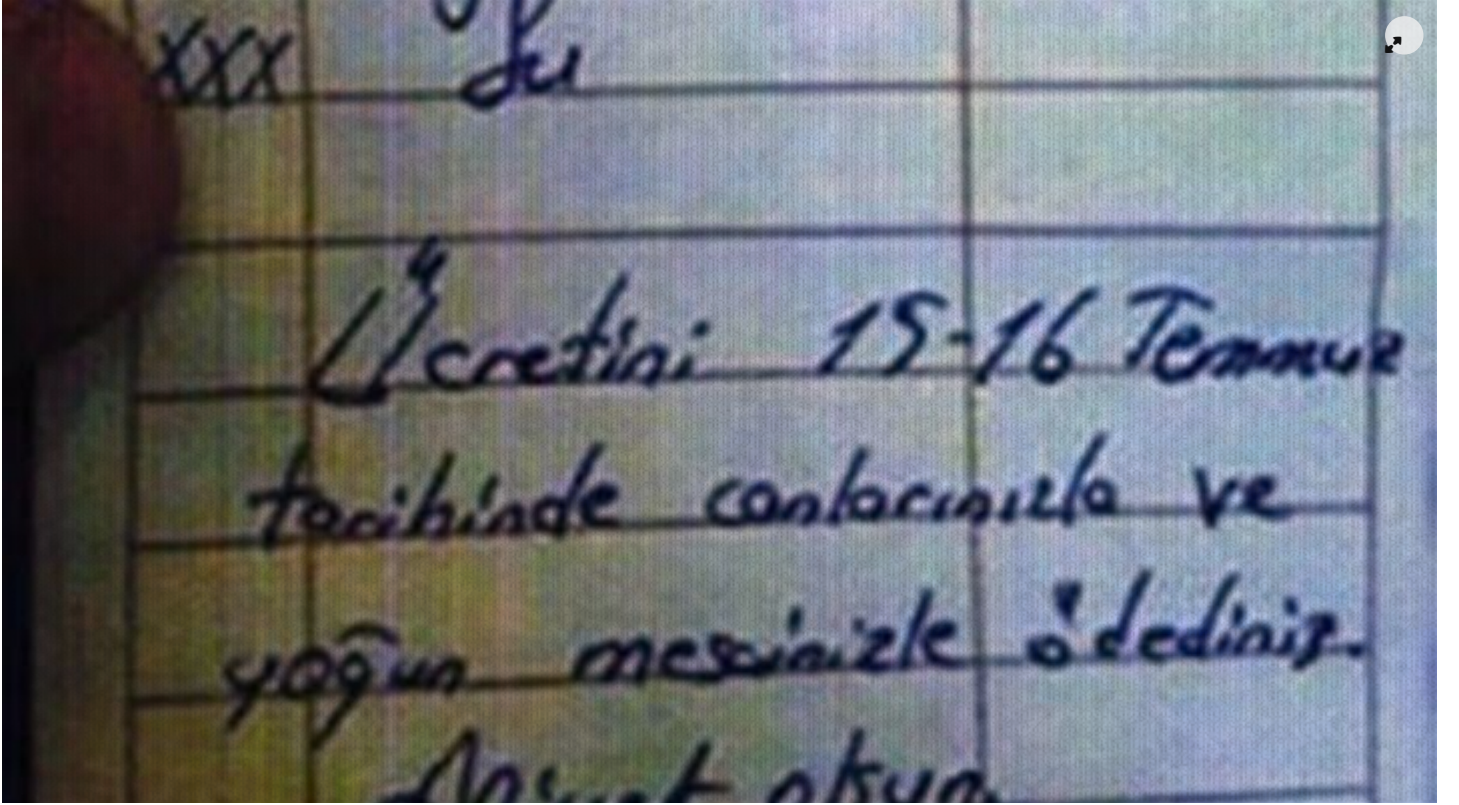 xxx
Ücretini 15-16 Temmuz
tarihinde canlarınızla ve
yoğun mesainizle ödediniz.
olsun